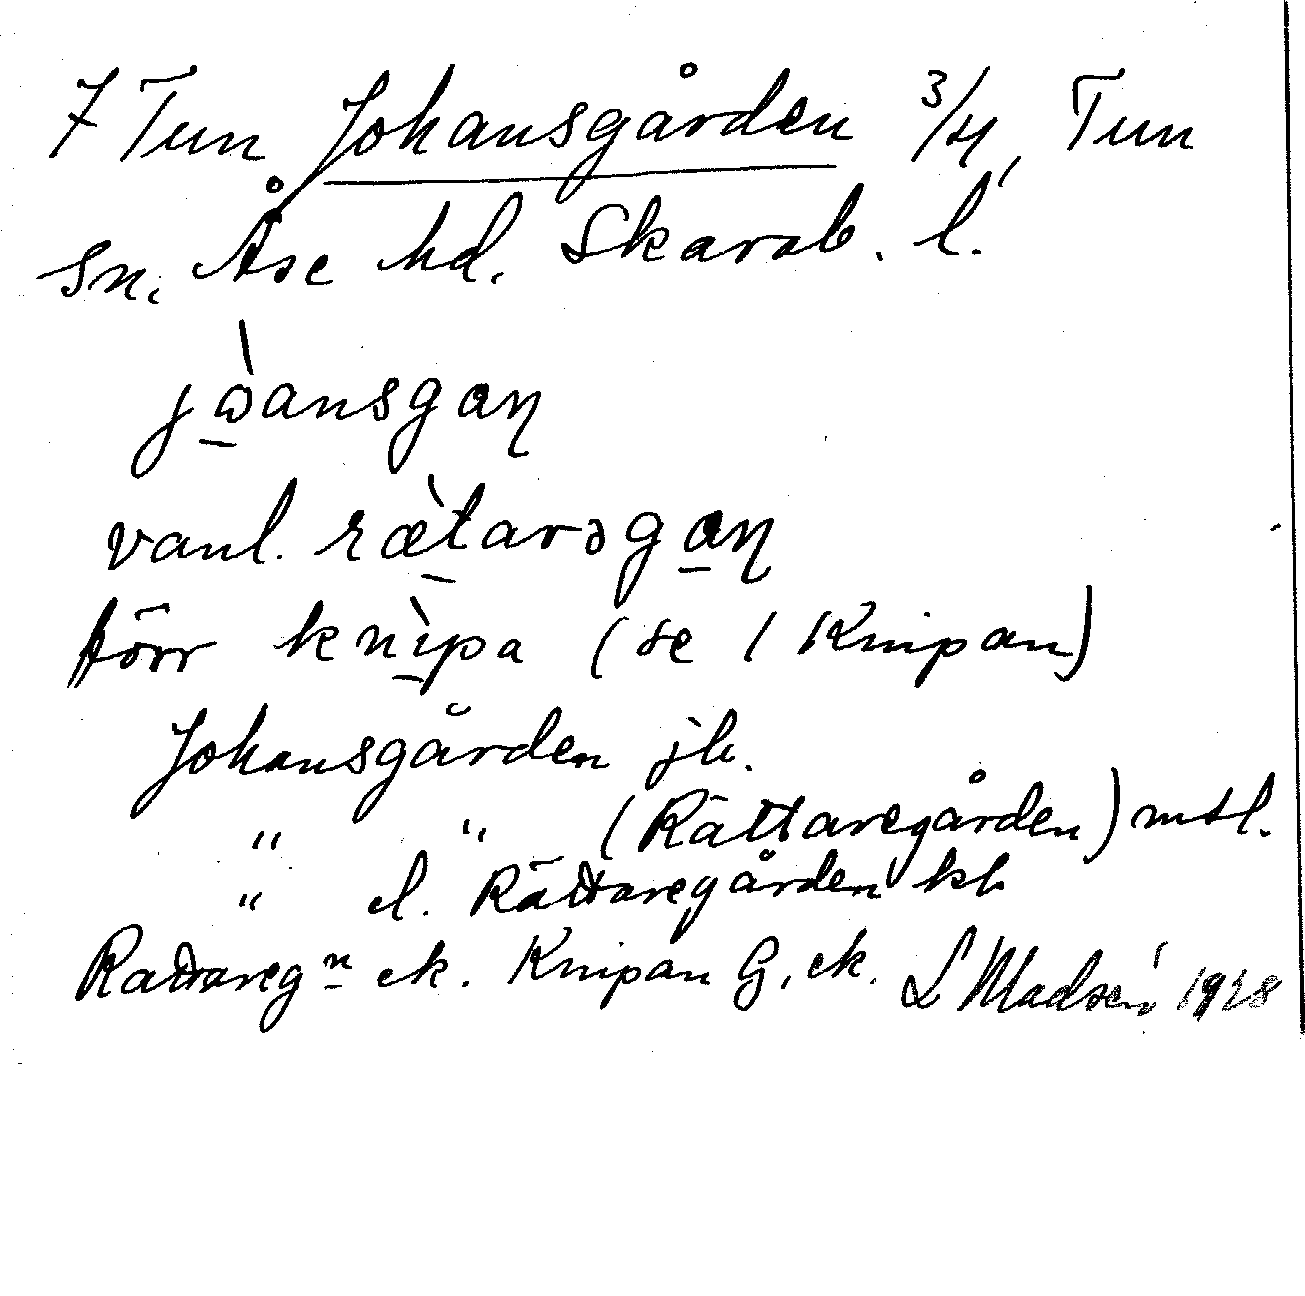 7 Tun Johansgården 3/4, Tun
sn. Åse hd. Skarab. l.
jɷ̀ansgaɳ
vanl. rætarəgaɳ
förr knìpa (se 1 Knipan)
Johansgården jb.
" " (Rättaregården) mtl.
" el. Rättaregården kb
Rättaregn ek. Knipan G. ek. L Madsén 1928